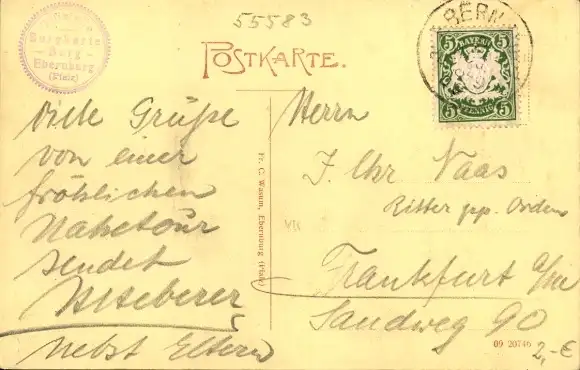 55583
Burgkarte
Burg
Ebernburg
(Pfalz)
POSTKARTE.
BERN
BAYERN
5 5
5 5
PFENNIG
Viele Grüße
von einer
fröhlichen
Nahetour
sendet
nebst Eltern
Herrn
Vaas
Ritter pp. Orden
Frankfurt a/M
Sandweg 90
Fr. C. Wasum, Ebernburg (Pfalz)
09 20746
2,-€